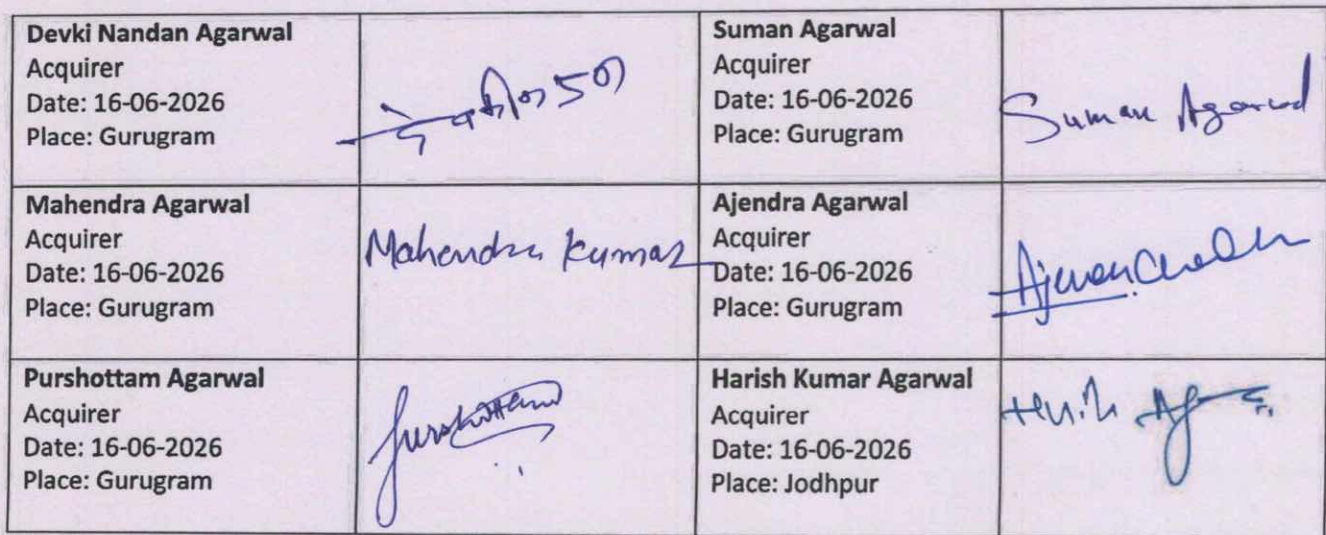 Devki Nandan Agarwal
Acquirer
Date: 16-06-2026
Place: Gurugram
Suman Agarwal
Acquirer
Date: 16-06-2026
Place: Gurugram
Suman Agarwal
Mahendra Agarwal
Acquirer
Date: 16-06-2026
Place: Gurugram
Mahendra Kumar
Ajendra Agarwal
Acquirer
Date: 16-06-2026
Place: Gurugram
Purshottam Agarwal
Acquirer
Date: 16-06-2026
Place: Gurugram
Purshottam
Harish Kumar Agarwal
Acquirer
Date: 16-06-2026
Place: Jodhpur